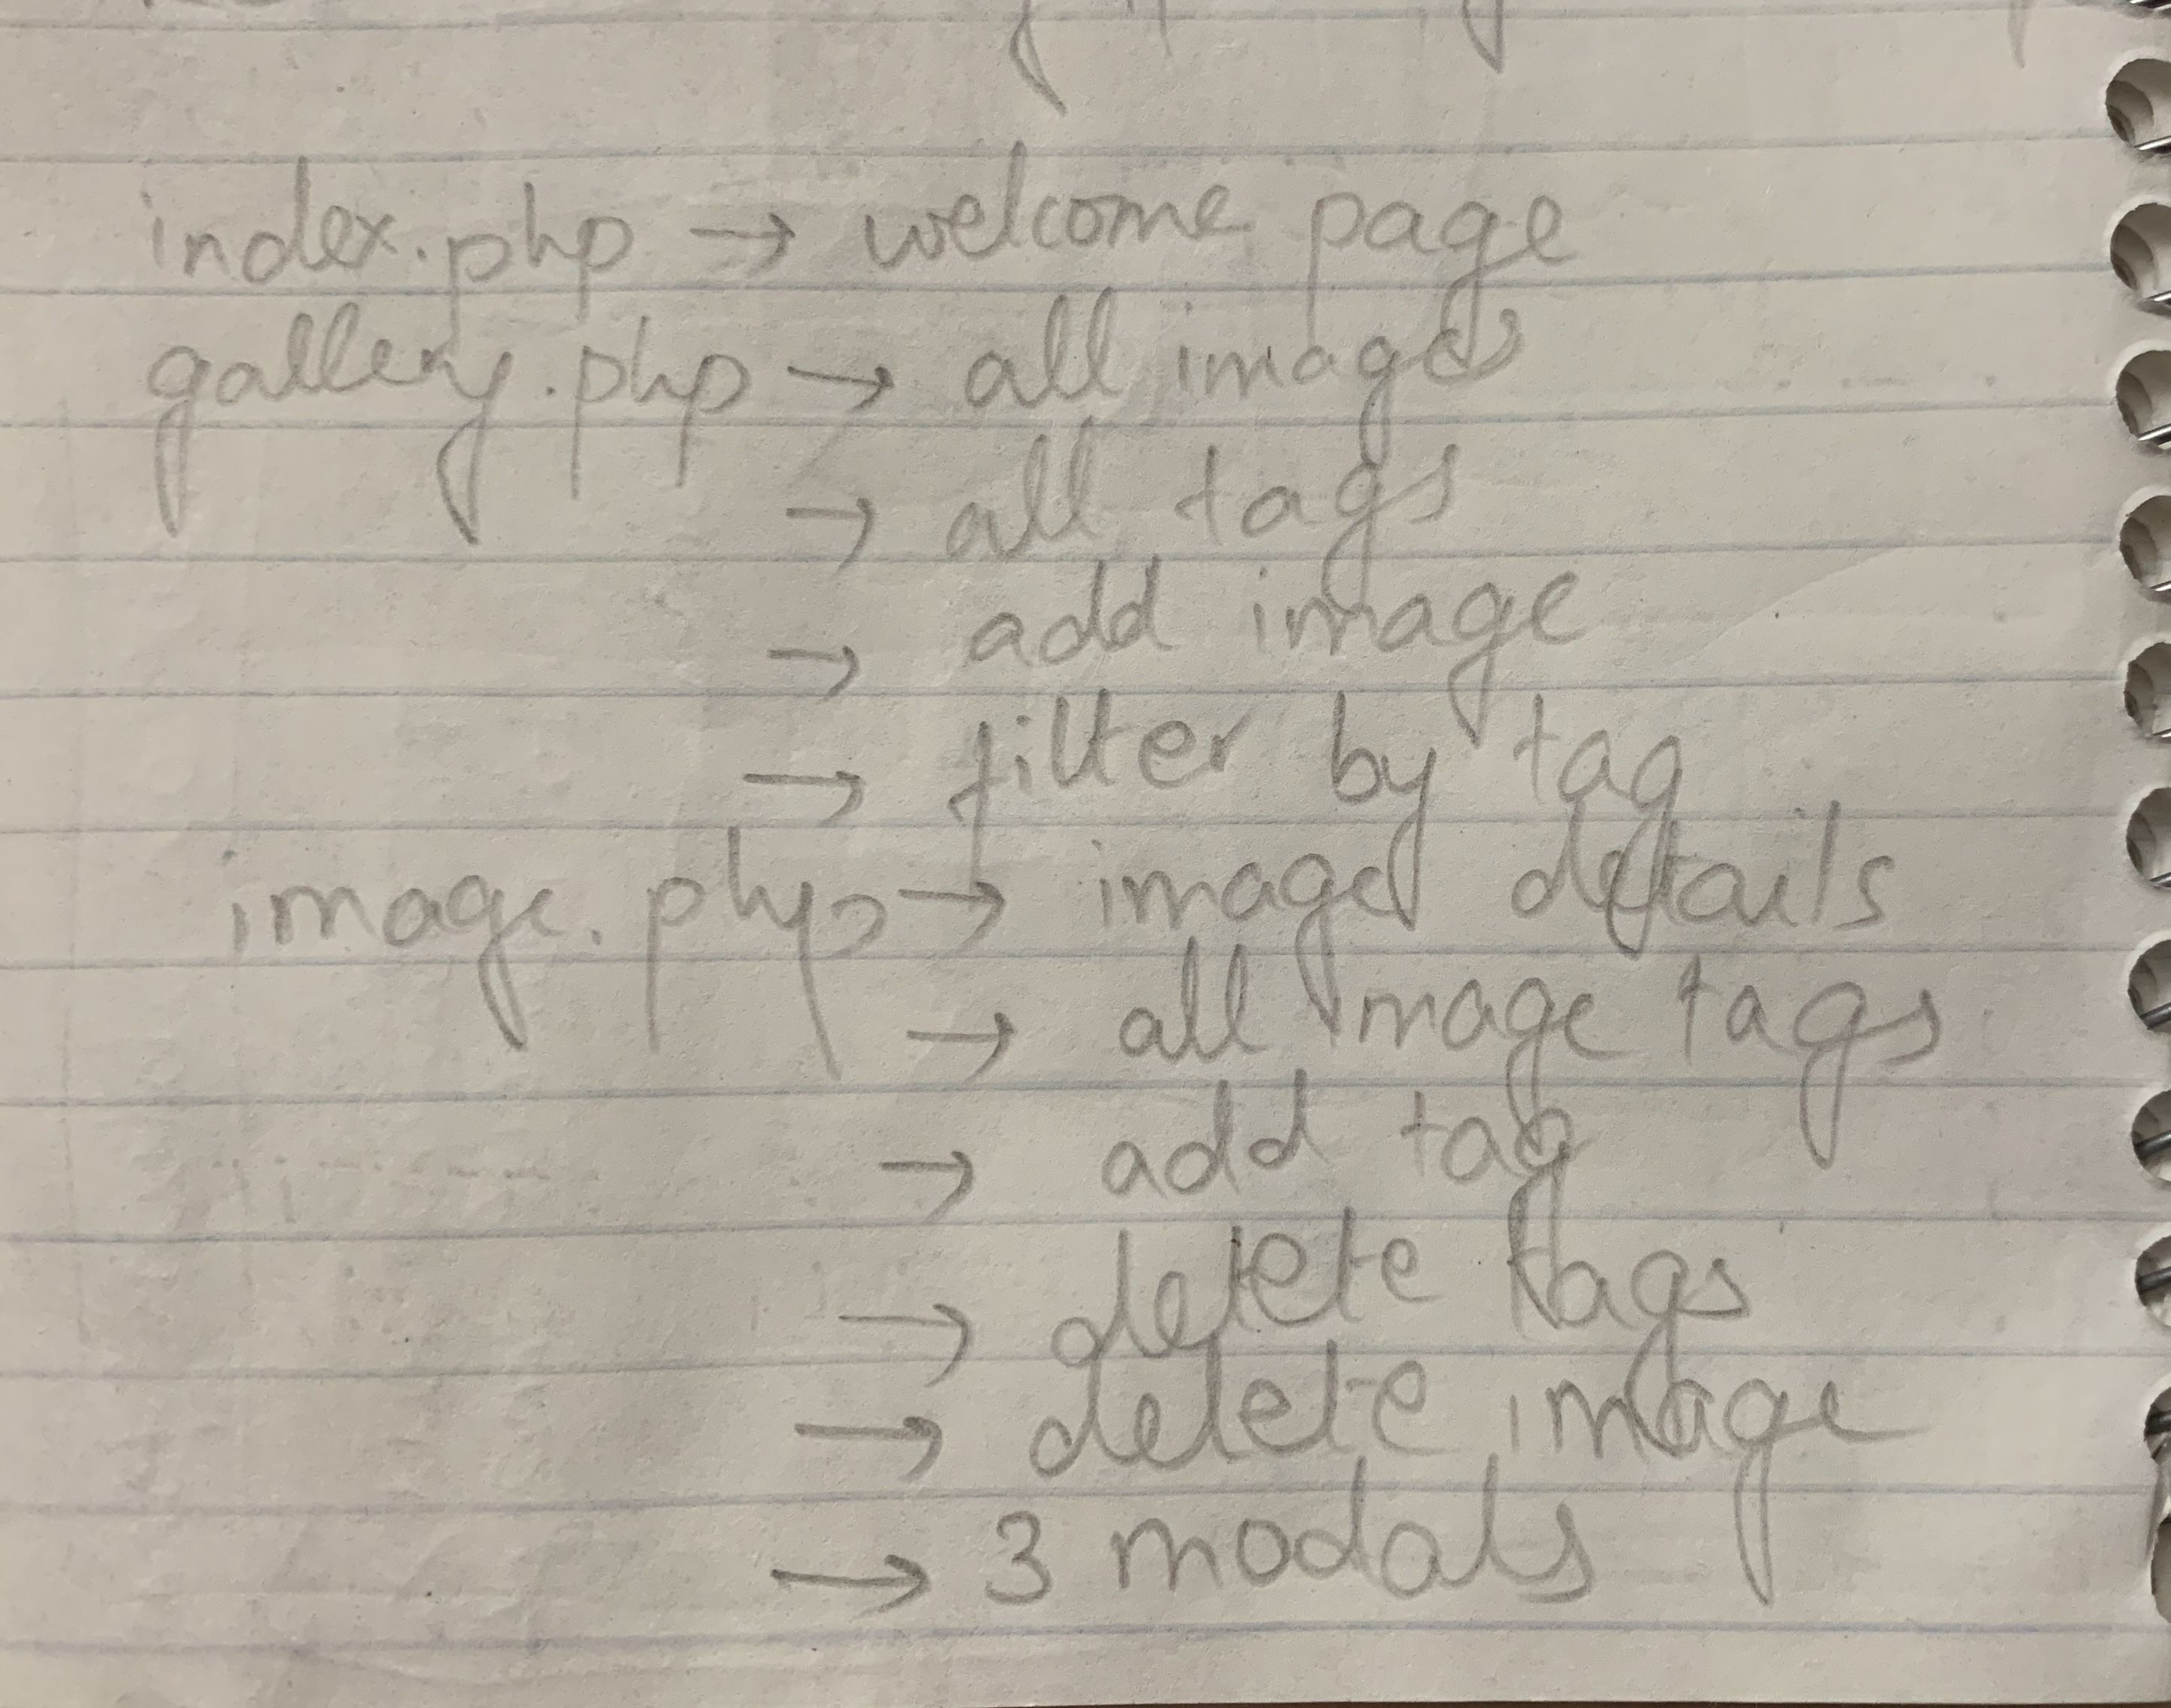 index.php → welcome page
gallery.php → all images
→ all tags
→ add image
→ filter by tag
image.php → image details
→ all image tags
→ add tag
→ delete tags
→ delete image
→ 3 modals